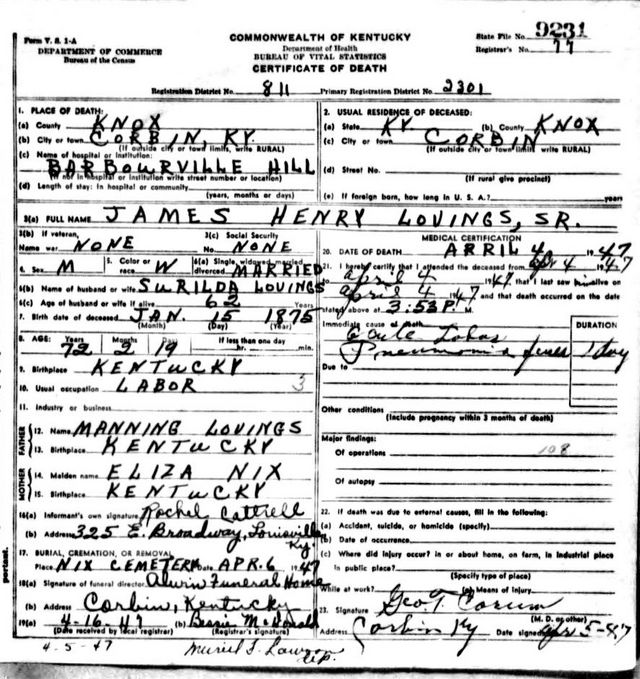 Form V. S. 1-A
DEPARTMENT OF COMMERCE
Bureau of the Census
COMMONWEALTH OF KENTUCKY
Department of Health
BUREAU OF VITAL STATISTICS
CERTIFICATE OF DEATH
State File No. 9231
Registrar's No. 77
Registration District No. 811 Primary Registration District No. 2301
1. PLACE OF DEATH:
(a) County KNOX
(b) City or town CORBIN KY.
(If outside city or town limits, write RURAL)
(c) Name of hospital or institution:
BARBOURVILLE HILL
(If not in hospital or institution write street number or location)
(d) Length of stay: In hospital or community
(years, months or days)
2. USUAL RESIDENCE OF DECEASED:
(a) State KY (b) County KNOX
(c) City or town CORBIN
(If outside city or town limits, write RURAL)
(d) Street No.
(If rural give precinct)
(e) If foreign born, how long in U. S. A.? years
3(a) FULL NAME JAMES HENRY LOVINGS, SR.
3(b) If veteran, Name war NONE
3(c) Social Security No. NONE
4. Sex M
5. Color or race W
6(a) Single, widowed, married, divorced MARRIED
6(b) Name of husband or wife SURILDA LOVINGS
6(c) Age of husband or wife if alive 62 Years
7. Birth date of deceased JAN. 15 1875
(Month) (Day) (Year)
8. AGE: Years Months Days If less than one day
72 2 19 hr. min.
9. Birthplace KENTUCKY
10. Usual occupation LABOR 3
11. Industry or business
FATHER
12. Name MANNING LOVINGS
13. Birthplace KENTUCKY
MOTHER
14. Maiden name ELIZA NIX
15. Birthplace KENTUCKY
16(a) Informant's own signature Rachel Cattrell
(b) Address 325 E. Broadway, Louisville Ky
17. BURIAL, CREMATION, OR REMOVAL
Place NIX CEMETERY Date APR. 6 1947
18(a) Signature of funeral director Funeral Home
(b) Address Corbin, Kentucky
19(a) 4-16-47 (b) Bessie McDonald
(Date received by local registrar) (Registrar's signature)
4-5-47 Muriel F. Lawson
MEDICAL CERTIFICATION
20. DATE OF DEATH APRIL 4, 1947
21. I hereby certify that I attended the deceased from Apr 4 1947
to April 4 1947 that I last saw him alive on
April 4 1947 and that death occurred on the date
stated above at 3:53 P. M.
Immediate cause of death
DURATION
Lobar
Pneumonia 1 day
Due to
Other conditions
(Include pregnancy within 3 months of death)
Major findings:
Of operations 108
Of autopsy
22. If death was due to external causes, fill in the following:
(a) Accident, suicide, or homicide (specify)
(b) Date of occurrence
(c) Where did injury occur? in or about home, on farm, in industrial place
In public place?
(Specify type of place)
While at work? (e) Means of injury.
23. Signature Geo T. Corum
(M. D. or other)
Address Corbin Ky Date signed Apr 5-47
portant.